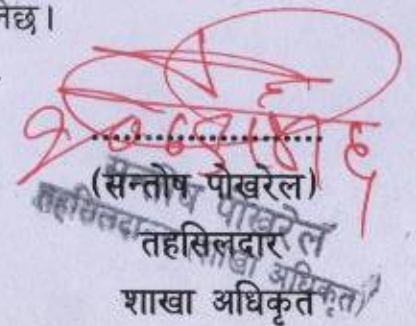 नेछ।
(सन्तोष पोखरेल)
तहसिलदार
शाखा अधिकृत
सन्तोष पोखरेल
तहसिलदार (शाखा अधिकृत)